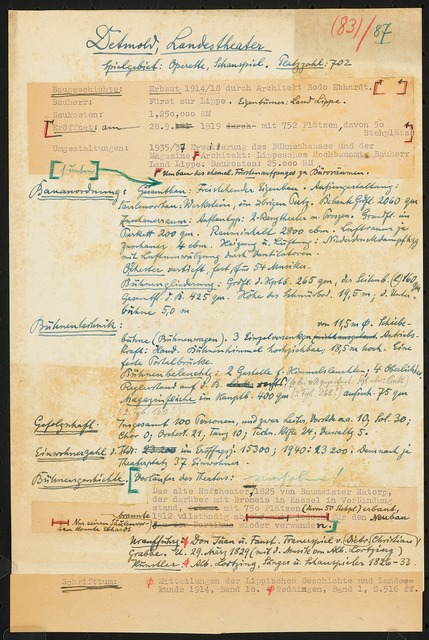 (83)/87
Detmold, Landestheater
Spielgebiet: Operette, Schauspiel. Platzzahl: 702
Baugeschichte: Erbaut 1914/18 durch Architekt Bodo Ebhardt.
Bauherr: Fürst zur Lippe. Eigentümer: Land Lippe.
Baukosten: 1,250,000 RM
Eröffnet: am 28.9. 1919 durch mit 752 Plätzen, davon 50
Stehplätze
Umgestaltungen: 1935/37 Erweiterung des Bühnenhauses und der
Magazine. Architekt: Lippisches Hochbauamt, Bauherr
Land Lippe. Baukosten: 25.000 RM
Umbau des ehemal. Fürstenaufganges zu Büroräumen.
Bauanordnung: Gesamtbau: Freistehender Eigenbau. Außengestaltung:
Säulenvorbau: Werkstein, im übrigen Putz. Bebaute Grdfl. 2060 qm
Zuschauerraum: 2-Rangtheater m. Logen. Grundfl. im
Parkett 200 qm. Rauminhalt 2800 cbm. Luftraum je
Zuschauer 4 cbm. Heizung u. Lüftung: Niederdruckdampfhzg
mit Luftumwälzung durch Ventilatoren.
Orchester vertieft, fest, für 54 Musiker.
Bühnengliederung: Grdfl. d. Hptb. 265 qm, der Seitenb. (l) 160 qm
Gesamtfl. d. B. 425 qm. Höhe des Schnürbod. 19,5 m; d. Unter-
bühne 5,0 m
Bühnentechnik: von 11,5 m Ø. Schiebe-
bühne (Bühnenwagen). 3 Einzelversenkgn. Antriebs-
kraft: Hand. Bühnenhimmel hochziehbar, 18,5 m hoch. Eine
feste Portalbrücke.
Bühnenbeleuchtg: 2 Gestelle f. Himmelsleuchten; 4 Oberlichter,
Reglerstand auf d. B.
Magazinfläche im Hauptgeb. 400 qm, außerh. 75 qm
Gefolgschaft: Insgesamt 100 Personen, und zwar Leiter, Vorstde u.a. 10, Sol. 30;
Chor 0; Orchest. 21, Tanz 10; Techn. Kräfte 24; Verwaltg 5.
Einwohnerzahl d. Stdt: im Eröffngsj. 15300; 1940: 23 200; Demnach je
Theaterplatz 37 Einwohner.
Bühnengeschichte: Vorläufer des Theaters:
Das alte Hoftheater, 1825 von Baumeister Natorp,
der darüber mit Bromeis in Kassel in Verbindung
stand, mit 750 Plätzen (davon 50 Stehpl.) erbaut,
brannte 1912 vollständig ab Neubau
Nur seinen Säulenvor-
bau konnte Ebhardt wieder verwenden
Uraufführg: Don Juan u. Faust. Trauerspiel v. (Dietr. Christian)
Grabbe. U. 29. März 1829 (mit d. Musik von Alb. Lortzing)
Künstler: Alb. Lortzing, Sänger u. Schauspieler 1826-33.
Schrifttum: Mitteilungen der Lippischen Geschichte und Landes-
kunde 1914, Band 10. Weddingen, Band 1, S.516 ff.